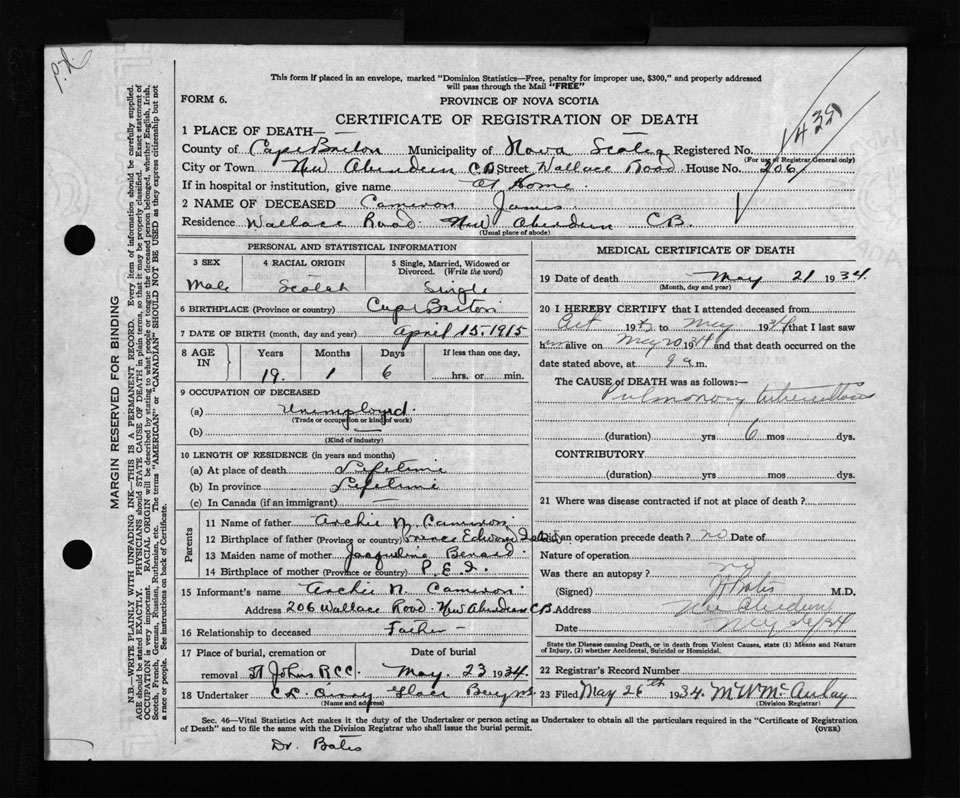 This form if placed in an envelope, marked "Dominion Statistics—Free, penalty for improper use, $300," and properly addressed
will pass through the Mail "FREE"
FORM 6.
PROVINCE OF NOVA SCOTIA
CERTIFICATE OF REGISTRATION OF DEATH
1 PLACE OF DEATH—
County of Cape Breton Municipality of Nova Scotia Registered No.
(For use of Registrar General only)
City or Town New Aberdeen C.B Street Wallace Road House No. 206
If in hospital or institution, give name At Home
2 NAME OF DECEASED Cameron James
Residence Wallace Road New Aberdeen C.B.
(Usual place of abode)
PERSONAL AND STATISTICAL INFORMATION
3 SEX 4 RACIAL ORIGIN 5 Single, Married, Widowed or
Divorced. (Write the word)
Male Scotch Single
6 BIRTHPLACE (Province or country) Cape Breton
7 DATE OF BIRTH (month, day and year) April 15, 1915
8 AGE IN Years Months Days If less than one day,
19 1 6 ....hrs. or .... min.
9 OCCUPATION OF DECEASED
(a) Unemployed
(Trade or occupation or kind of work)
(b)
(Kind of industry)
10 LENGTH OF RESIDENCE (in years and months)
(a) At place of death Lifetime
(b) In province Lifetime
(c) In Canada (if an immigrant)
Parents
11 Name of father Archie N. Cameron
12 Birthplace of father (Province or country) Prince Edward Island
13 Maiden name of mother Jacqueline Benard
14 Birthplace of mother (Province or country) P.E.I.
15 Informant's name Archie N. Cameron
Address 206 Wallace Road. New Aberdeen C.B.
16 Relationship to deceased Father
17 Place of burial, cremation or Date of burial
removal St Johns R.C.C. May. 23 1934.
18 Undertaker Glace Bay N.S.
(Name and address)
MEDICAL CERTIFICATE OF DEATH
19 Date of death May 21 1934.
(Month, day and year)
20 I HEREBY CERTIFY that I attended deceased from
Oct 1933 to May 1934 that I last saw
him alive on May 20 1934 and that death occurred on the
date stated above, at 9 a.m.
The CAUSE of DEATH was as follows:—
Pulmonary tuberculosis
(duration) yrs 6 mos dys.
CONTRIBUTORY
(duration) yrs mos dys.
21 Where was disease contracted if not at place of death?
Did an operation precede death? no Date of
Nature of operation
Was there an autopsy? no
(Signed) Bates M.D.
Address New Aberdeen
Date May 26/34
State the Disease causing Death, or in death from Violent Causes, state (1) Means and
Nature of Injury, (2) whether Accidental, Suicidal or Homicidal.
22 Registrar's Record Number
23 Filed May 26th 1934. M W McAulay
(Division Registrar)
Sec. 46—Vital Statistics Act makes it the duty of the Undertaker or person acting as Undertaker to obtain all the particulars required in the "Certificate of Registration
of Death" and to file the same with the Division Registrar who shall issue the burial permit.
(OVER)
Dr. Bates
MARGIN RESERVED FOR BINDING
N.B.—WRITE PLAINLY WITH UNFADING INK—THIS IS A PERMANENT RECORD. Every item of information should be carefully supplied.
AGE should be stated EXACTLY. PHYSICIANS should STATE CAUSE OF DEATH in plain terms, so that it may be properly classified. Exact statement of
OCCUPATION is very important. RACIAL ORIGIN will be described by stating to what people or tongue the deceased person belonged, whether English, Irish,
Scotch, French, German, Russian, Ruthenian, etc. The terms "AMERICAN" or "CANADIAN" SHOULD NOT BE USED as they express citizenship but not
a race or people. See instructions on back of Certificate.